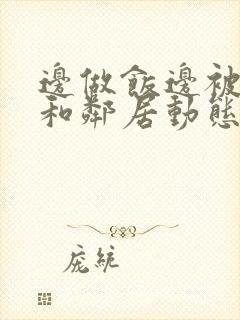 邊做飯邊被
和鄰居動態
庞統